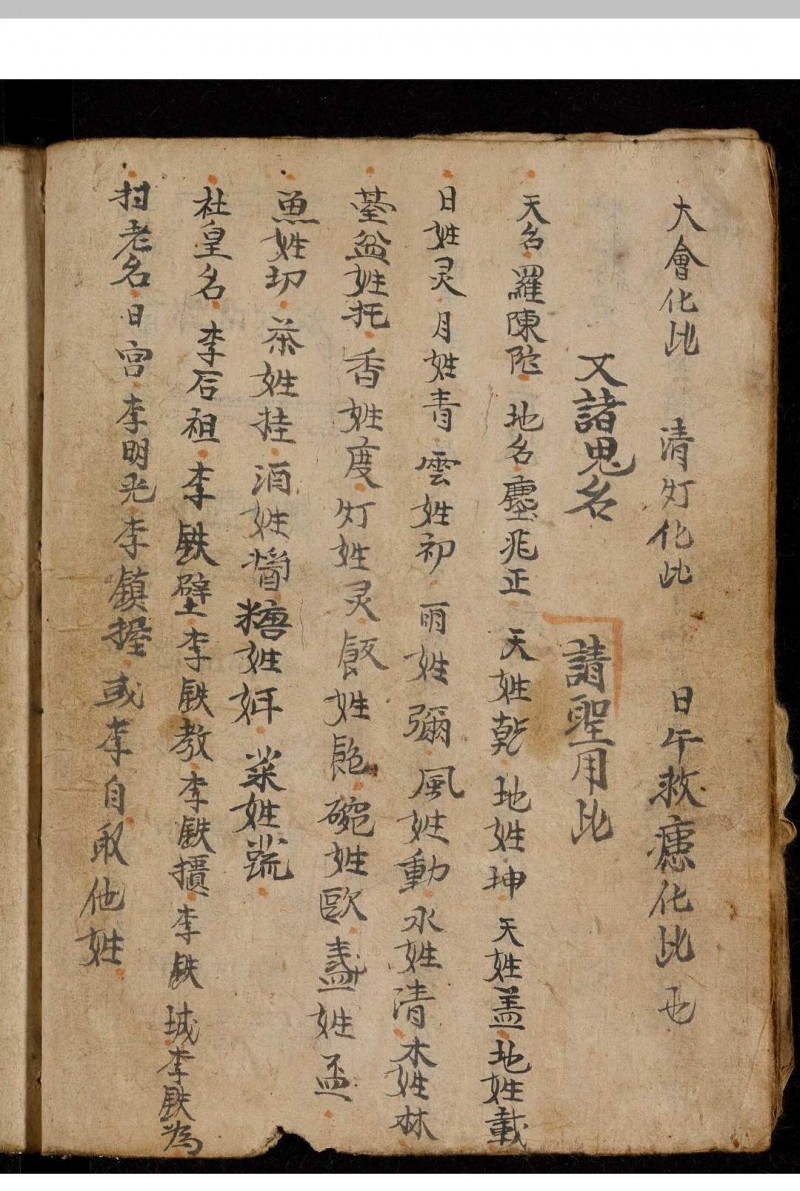 大會化比 清灯化比 日午救痣化比也
又諸鬼名 請聖用比
天名羅陳陀 地名塵兆正 天姓乾 地姓坤 天姓盖 地姓載
日姓灵 月姓青 雲姓初 雨姓彌 風姓動 水姓清 木姓林
臺盆姓托 香姓度 灯姓灵 飯姓 碗姓歐 盞姓盃
魚姓切 茶姓挂 酒姓 糖姓 菜姓
社皇名 李石祖 李鉄壁 李鉄教 李鉄 李鉄城 李鉄為
村老名 日宫 李明光 李鎮握 或李自取他姓